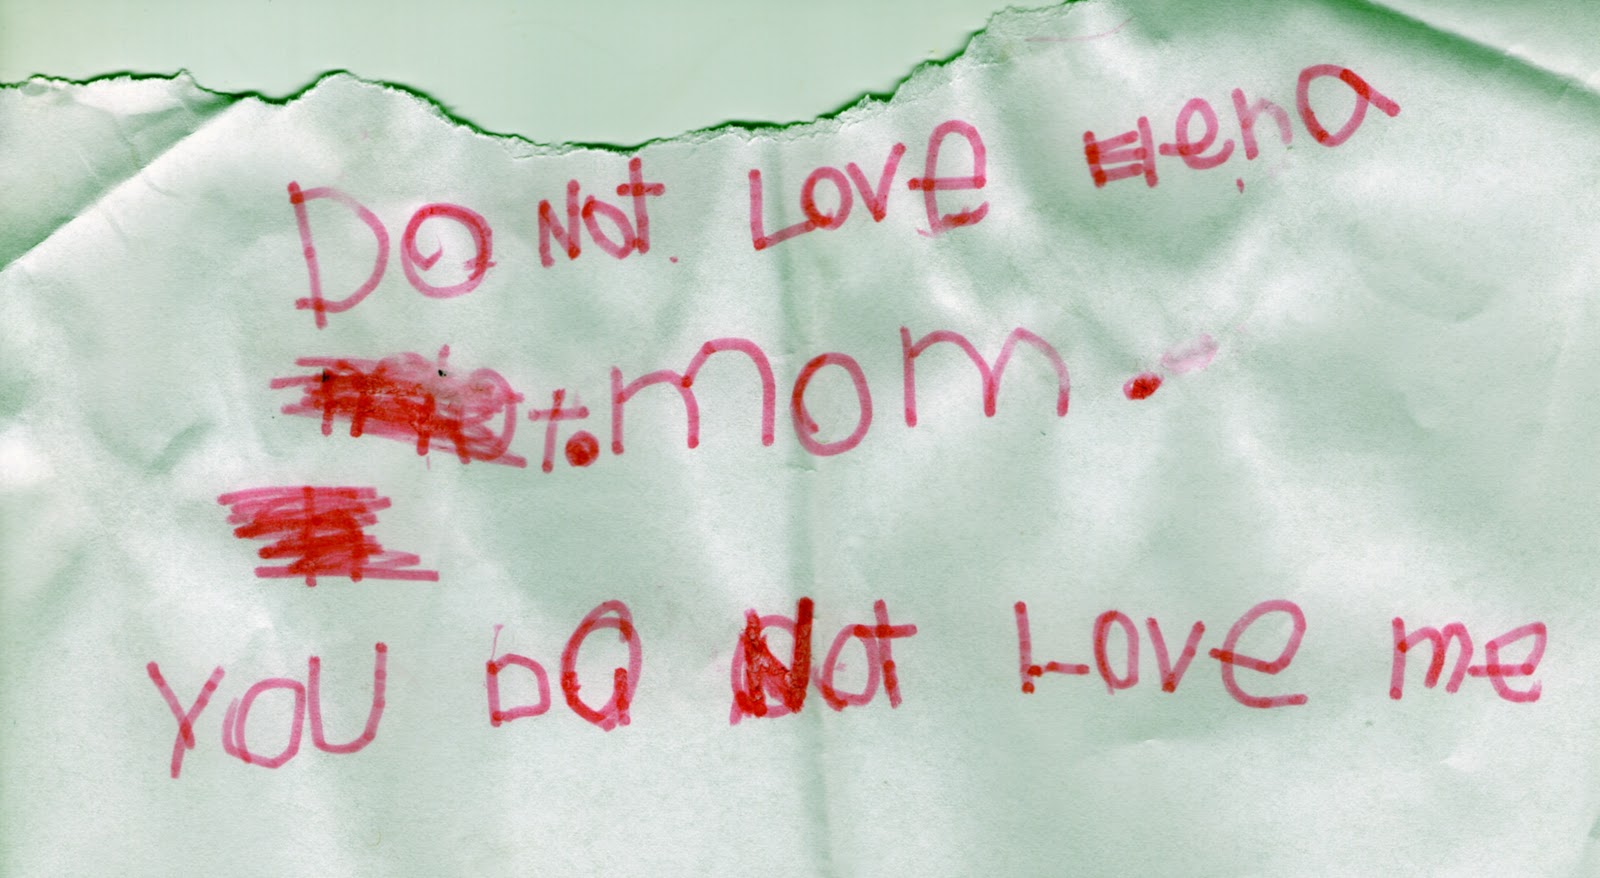 DO Not. LOVE Elena
t. mom.
YOU DO Not LOVE me